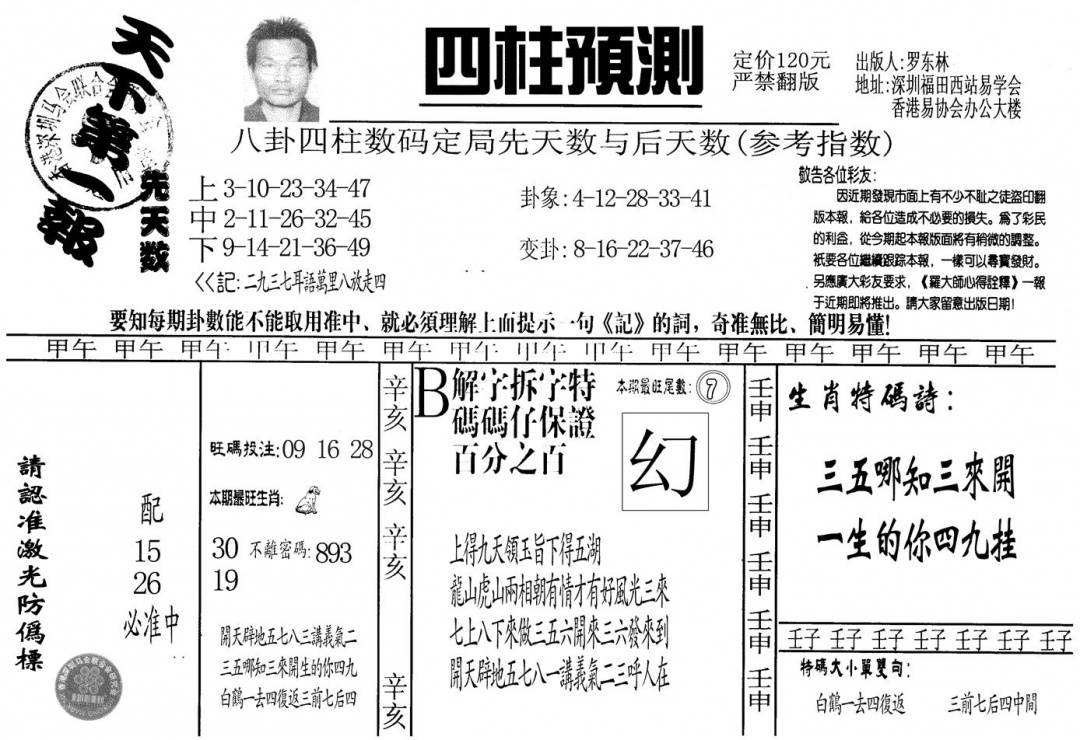 天下第一報
四柱預測
定价120元
严禁翻版
出版人:罗东林
地址:深圳福田西站易学会
香港易协会办公大楼
八卦四柱数码定局先天数与后天数(参考指数)
先天数
上 3-10-23-34-47
中 2-11-26-32-45
下 9-14-21-36-49
<<記:二九三七耳語萬里八放走四
卦象:4-12-28-33-41
变卦:8-16-22-37-46
敬告各位彩友:
因近期發現市面上有不少不耻之徒盜印翻
版本報,給各位造成不必要的損失。爲了彩民
的利益,從今期起本報版面將有稍微的調整。
衹要各位繼續跟踪本報,一樣可以尋寶發財。
另應廣大彩友要求,《羅大師心得詮釋》一報
于近期即將推出。請大家留意出版日期!
要知每期卦數能不能取用准中、就必須理解上面提示一句《記》的詞,奇准無比、簡明易懂!
甲午 甲午 甲午 甲午 甲午 甲午 甲午 甲午 甲午 甲午 甲午 甲午 甲午 甲午 甲午
請認准激光防僞標
配
15
26
必准中
旺碼投注:09 16 28
本期最旺生肖:
30 不離密碼:893
19
開天辟地五七八三講義氣二
三五哪知三來開生的你四九
白鶴一去四復返三前七后四
辛亥
辛亥
辛亥
辛亥
B
解字拆字特
碼碼仔保證
百分之百
本期最旺尾數:7
幻
上得九天領玉旨下得五湖
龍山虎山兩相朝有情才有好風光三來
七上八下來做三五六開來三六發來到
開天辟地五七八一講義氣二三呼人在
壬申
壬申
壬申
壬申
壬申
壬申
生肖特碼詩:
三五哪知三來開
一生的你四九挂
壬子 壬子 壬子 壬子 壬子 壬子 壬子
特碼大小單雙句:
白鶴一去四復返 三前七后四中間